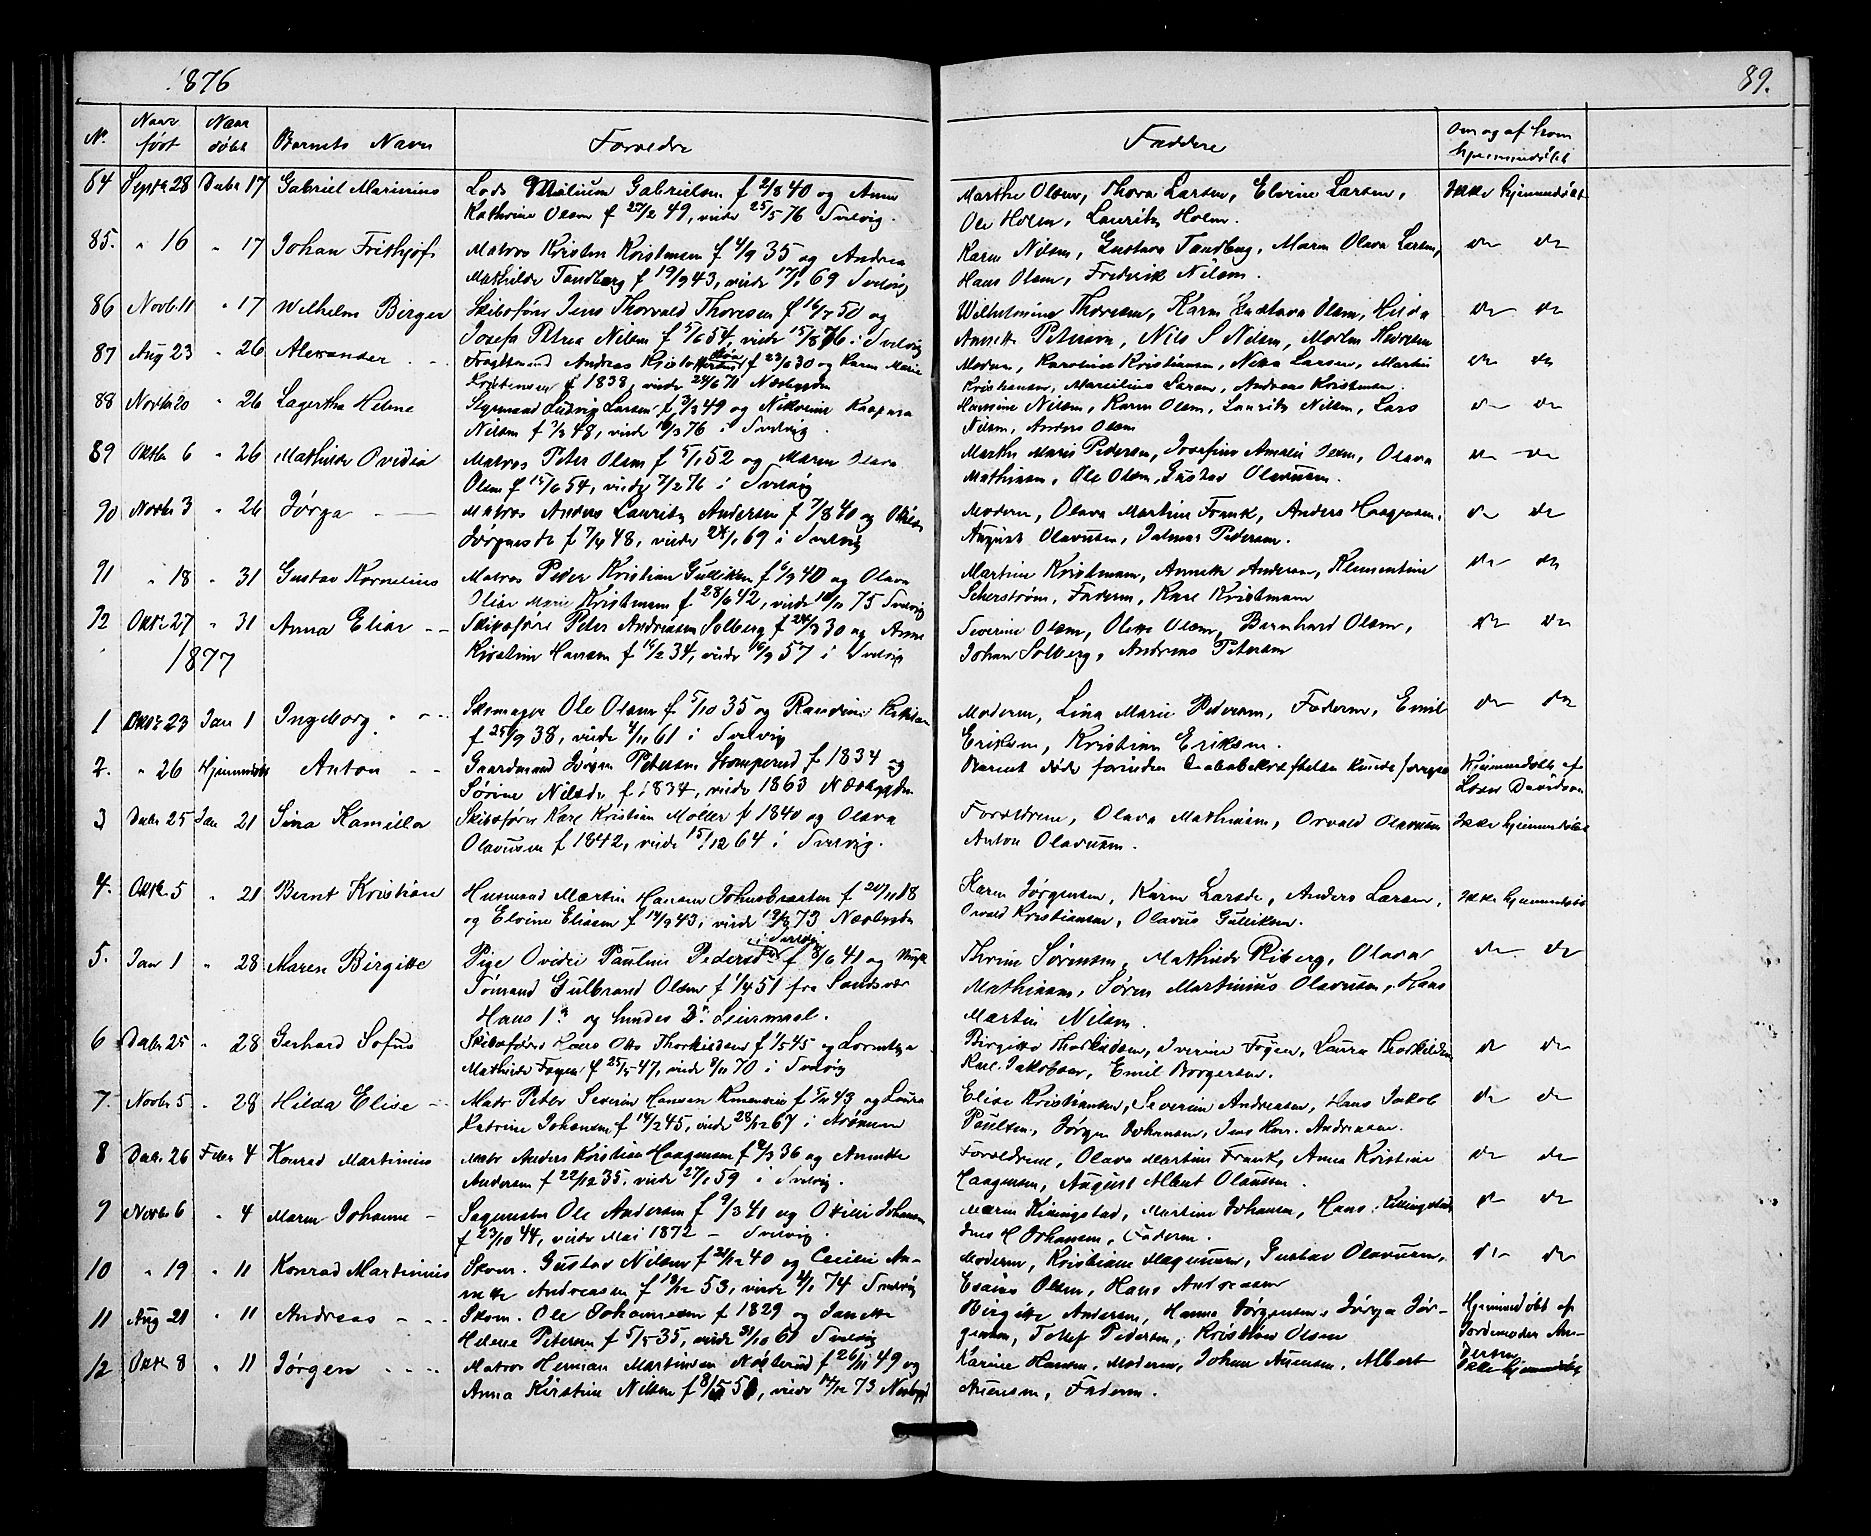 1876
89.
No. Naar født Naar døbt Barnets Navn Forældre Faddere Om og af hvem hjemmedøbt
64 Septr 28 Decbr 17 Gabriel Marinius Lods Gabrielsen f 2/8 40 og Anne Marthe Olsen, Thora Larsen, Elvine Larsen, Ikke hjemmedøbt
Kathrine Olsen f 27/2 49, viede 25/5 76 Svelvig. Ole Holm, Lauritz Holm.
85. " 16 " 17 Johan Frithjof Matros Kristen Kristensen f 4/9 35 og Andrea Karen Nilsen, Gustava Tandberg, Maren Olava Larsen, do do
Mathilde Tandberg f 19/9 43, viede 17/1 69 Svelvig Hans Olsen, Frederik Nilsen.
86 Novbr 11 " 17 Wilhelm Birger Skibsfører Jens Thorvald Thoresen f 16/7 50 og Wilhelmine Thoresen, Karen Gustava Olsen, Hilda do do
Josefa Petrea Nilsen f 5/6 54, viede 15/5 76 i Svelvig Annette Petersen, Nils S Nilsen, Morten Hansen
87 Aug 23 " 26 Alexander - - Andreas f 23/10 30 og Karen Marie Moderen, Karoline Kristiansen, Netta Larsen, Martin do do
Kristensen f 1838, viede 24/6 71 Næsbygden Kristiansen, Marcilius Larsen, Andreas Kristensen.
88 Novbr 20 " 26 Lagertha Helene Styrmand Ludvig Larsen f 3/3 49 og Nikoline Kaspara Hansine Nilsen, Karen Olsen, Lauritz Nilsen, Lars do do
Nilsen f 7/3 48, viede 16/3 76 i Svelvig. Nilsen, Anders Olsen
89 Oktbr 6 " 26 Mathilde Ovidia Matros Peter Olsen f 5/1 52 og Maren Olava Marthe Marie Pedersen, Josefine Amalie Olsen, Olava do do
Olsen f 15/6 54, viede 7/2 76 i Svelvig Mathisen, Ole Olsen, Gustav Olavusen.
90 Novbr 3 " 26 Jørga - - Matros Anders Lauritz Andersen f 7/8 40 og Moderen, Olava Martine Frank, Anders Haagensen, do do
Jørgensdr f 7/4 48, viede 24/1 69 i Svelvig August Olavusen, Jalmar Pedersen.
91 " 18 " 31 Gustav Kornelius Matros Peder Kristian Gulliksen f 6/9 40 og Olava Martine Kristensen, Annette Andersen, Klementine do do
Marie Kristensen f 28/6 42, viede 10/11 75 Svelvig Seherstrøm, Faderen, Karl Kristensen
92 Oktbr 27 " 31 Anna Elise - - Skibsfører Peter Andreasen Solberg f 24/3 30 og Anne Severine Olsen, Olette Olsen, Bernhard Olsen, do do
Kirstine Hansen f 15/2 34, viede 16/9 57 i Svelvig Johan Solberg, Andreas Petersen
1877
1 Oktbr 23 Jan 1 Ingeborg - - Skomager Ole Olsen f 5/10 35 og Randine Moderen, Lina Marie Pedersen, Faderen, Emil do do
f 25/9 38, viede 4/11 61 i Svelvig Eriksen, Kristian Eriksen.
2. " 26 Hjemmedøbt Anton - - Gaardmand Jørgen Petersen Stomperud f 1834 og Barnet døde forinden Daabsbekræftelsen kunde foregaa Hjemmedøbt af
Sørine Nilsdr f 1834, viede 1863 Næsbygden Davidsen
3 Decbr 25 Jan 21 Sina Kamilla Skibsfører Karl Kristian Møller f 1840 og Olava Forældrene, Olava Mathisen, Orvald Olavusen Ikke hjemmedøbt
Olavusen f 1842, viede 15/12 64 i Svelvig. Anton Olavusen.
4. Oktbr 5 " 21 Bernt Kristian Husmand Martin Hansen Johnsbraaten f 20/11 18 Karen Jørgensen, Karen Larsdr, Anders Larsen, Ikke hjemmedøbt
og Elvine Eliasen f 14/9 43, viede 19/8 73 Næsbygden Orvald Kristiansen, Olavus Gulliksen.
5. Jan 1 " 28 Maren Birgitte Pige Ovidie Pauline Pedersdr i Svelvig f 8/6 41 og Ungk. Thrine Sørensen, Mathilde Riberg, Olava do do
Tømmd Gulbrand Olsen f 1/4 51 fra Sandsvær Mathisen, Søren Martinius Olavusen, Hans
Hans 1ste og hendes 3die Leiermaal. Martin Nilsen.
6 Decbr 25 " 28 Gerhard Sofus Skibsfører Hans Otto Thorkildsen f 1/5 45 og Birgitte Thorkildsen, Iverine Fogen, Laura Thorkildsen do do
Mathilde Fogen f 25/5 47, viede 8/11 70 i Svelvig Karl Jakobsen, Emil Borgersen.
7. Novbr 5 " 28 Hilda Elise - Matr Peter Severin Hansen f 5/11 43 og Laura Elise Kristiansen, Severine Andreasen, Hans Jakob do do
Katrine Johansen f 14/2 45, viede 28/12 67 i Paulsen, Jørgen Johansen, Jens Andreassen.
8 Decbr 26 Febr 4 Konrad Martinius Matr Anders Kristian Haagensen f 9/3 36 og Annette Forældrene, Olava Martine Frank, Anna Kristine do do
Andersen f 22/12 35, viede 27/1 59 i Svelvig. Haagensen, August Albert Olausen.
9 Novbr 6 " 4 Maren Johanne - Sagmester Ole Andersen f 9/3 41 og Otilie Johansen Maren Killingstad, Martine Johansen, Hans Killingstad do do
f 23/10 44, viede Mai 1872 - Svelvig. Jens H Johansen, Faderen.
10 " 19 " 11 Konrad Martinius Skom. Gustav Nilsen f 21/12 40 og Cecilie An- Moderen, Kristiane Magnusen, Gustav Olavusen, do do
nette Andreasen f 13/12 53, viede 2/1 74 Svelvig Esaias Olsen, Hans Andreasen
11 Aug 21 " 11 Andreas - - Skom. Ole Johannesen f 1829 og Janette Birgitte Andersen, Hanna Jørgensen, Jørga Jør- Hjemmedøbt af
Helene Petersen f 5/5 35, viede 31/10 61 Svelvig gensen, Tollef Pedersen, Kristian Olsen Jordemoder An-
dersen
12 Oktbr 8 " 11 Jørgen - - Matros Herman Martinsen Nøsterud f 26/11 49 og Karine Hansen, Moderen, Johan Auensen, Albert Ikke hjemmedøbt
Anna Kirstine Nilsen f 8/5 50, viede 14/12 73 Nesbygd Auensen, Faderen.